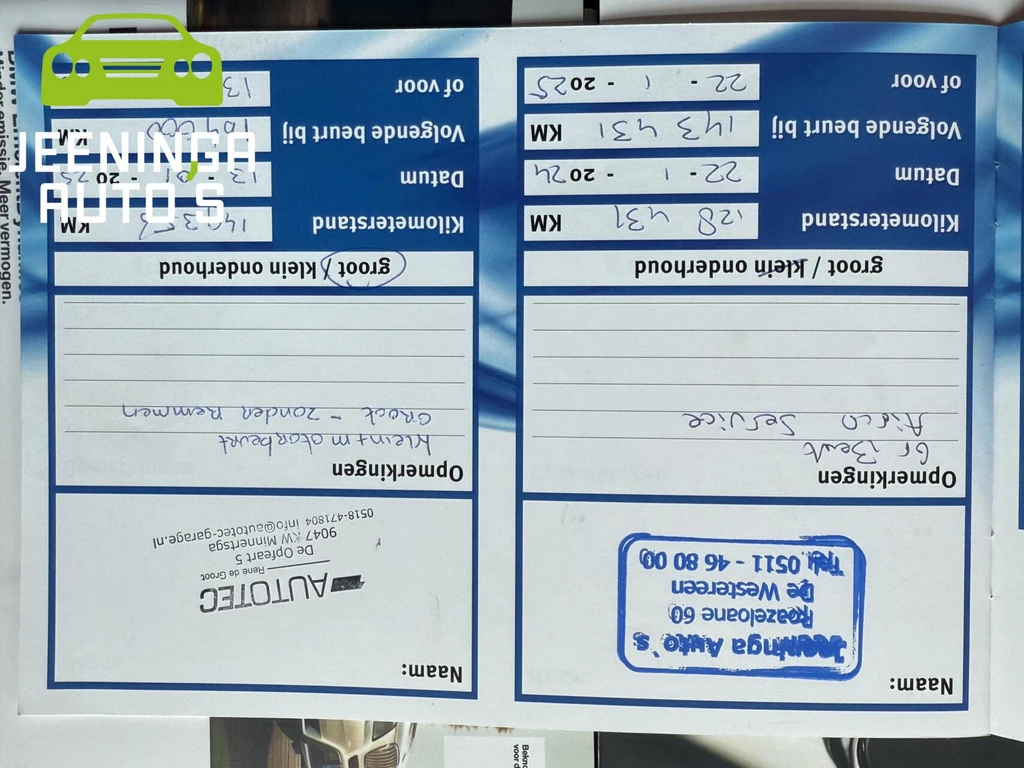 JEENINGA
AUTO'S
Naam:
Jeeninga Auto's
Roazeloane 60
De Westereen
Tel. 0511 - 46 80 00
Opmerkingen
Gr Beurt
Airco Service
groot / klein onderhoud
Kilometerstand 128 431 KM
Datum 22 - 1 - 2024
Volgende beurt bij 143 431 KM
of voor 22 - 1 - 2025
Naam:
AUTOTEC
René de Groot
De Opfeart 5
9047 KW Minnertsga
0518-471804 info@autotec-garage.nl
Opmerkingen
Klein + motorbeurt
Groot - zonder Remmen
groot / klein onderhoud
Kilometerstand KM
Datum 13 - 01 - 2025
Volgende beurt bij KM
of voor 13
Minder emissie. Meer vermogen.